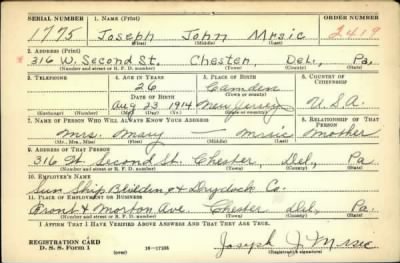 SERIAL NUMBER 1. NAME (Print) ORDER NUMBER
1775 Joseph John Mrsic 2419
(First) (Middle) (Last)
2. ADDRESS (Print)
316 W. Second St. Chester, Del., Pa.
(Number and street or R. F. D. number) (Town) (County) (State)
3. TELEPHONE 4. AGE IN YEARS 5. PLACE OF BIRTH 6. COUNTRY OF CITIZENSHIP
26 Camden
DATE OF BIRTH (Town or county)
Aug 23 1914 New Jersey U.S.A.
(Exchange) (Number) (Mo.) (Day) (Yr.) (State or country)
7. NAME OF PERSON WHO WILL ALWAYS KNOW YOUR ADDRESS 8. RELATIONSHIP OF THAT PERSON
Mrs. Mary — Mrsic Mother
(Mr., Mrs., Miss) (First) (Middle) (Last)
9. ADDRESS OF THAT PERSON
316 W. Second St. Chester, Del, Pa
(Number and street or R. F. D. number) (Town) (County) (State)
10. EMPLOYER'S NAME
Sun Ship Building & Drydock Co.
11. PLACE OF EMPLOYMENT OR BUSINESS
Front & Morton Ave. Chester Del. Pa.
(Number and street or R. F. D. number) (Town) (County) (State)
I AFFIRM THAT I HAVE VERIFIED ABOVE ANSWERS AND THAT THEY ARE TRUE.
REGISTRATION CARD
D. S. S. Form 1 (over) 16—17105 Joseph J. Mrsic
(Registrant's signature)